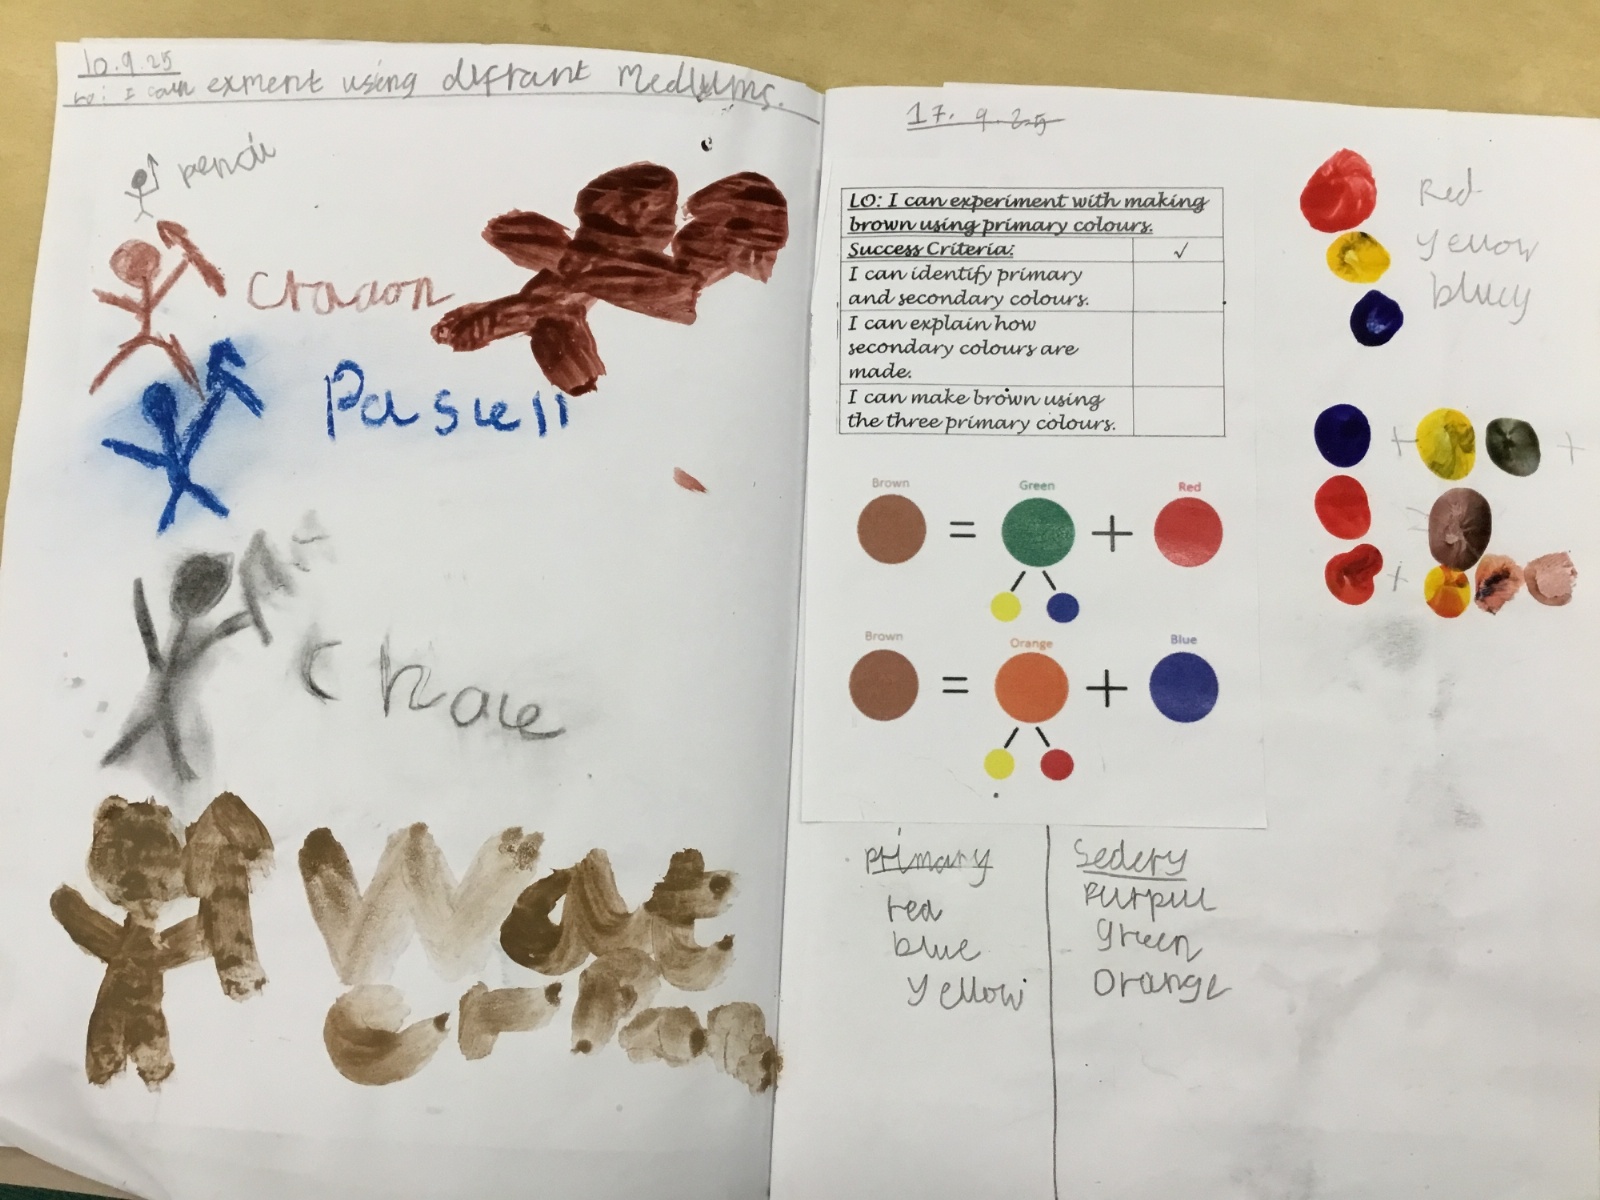 10.9.25
LO: I can exment using difrant mediums.
pencil
Craaon
Pasell
Wate
17.9.25
LO: I can experiment with making
brown using primary colours.
Success Criteria: ✓
I can identify primary
and secondary colours.
I can explain how
secondary colours are
made.
I can make brown using
the three primary colours.
Brown Green Red
= +
Brown Orange Blue
= +
primary
red
blue
yellow
Sedery
Purpul
green
Orange
Red
Yellow
bluey
+ +
+